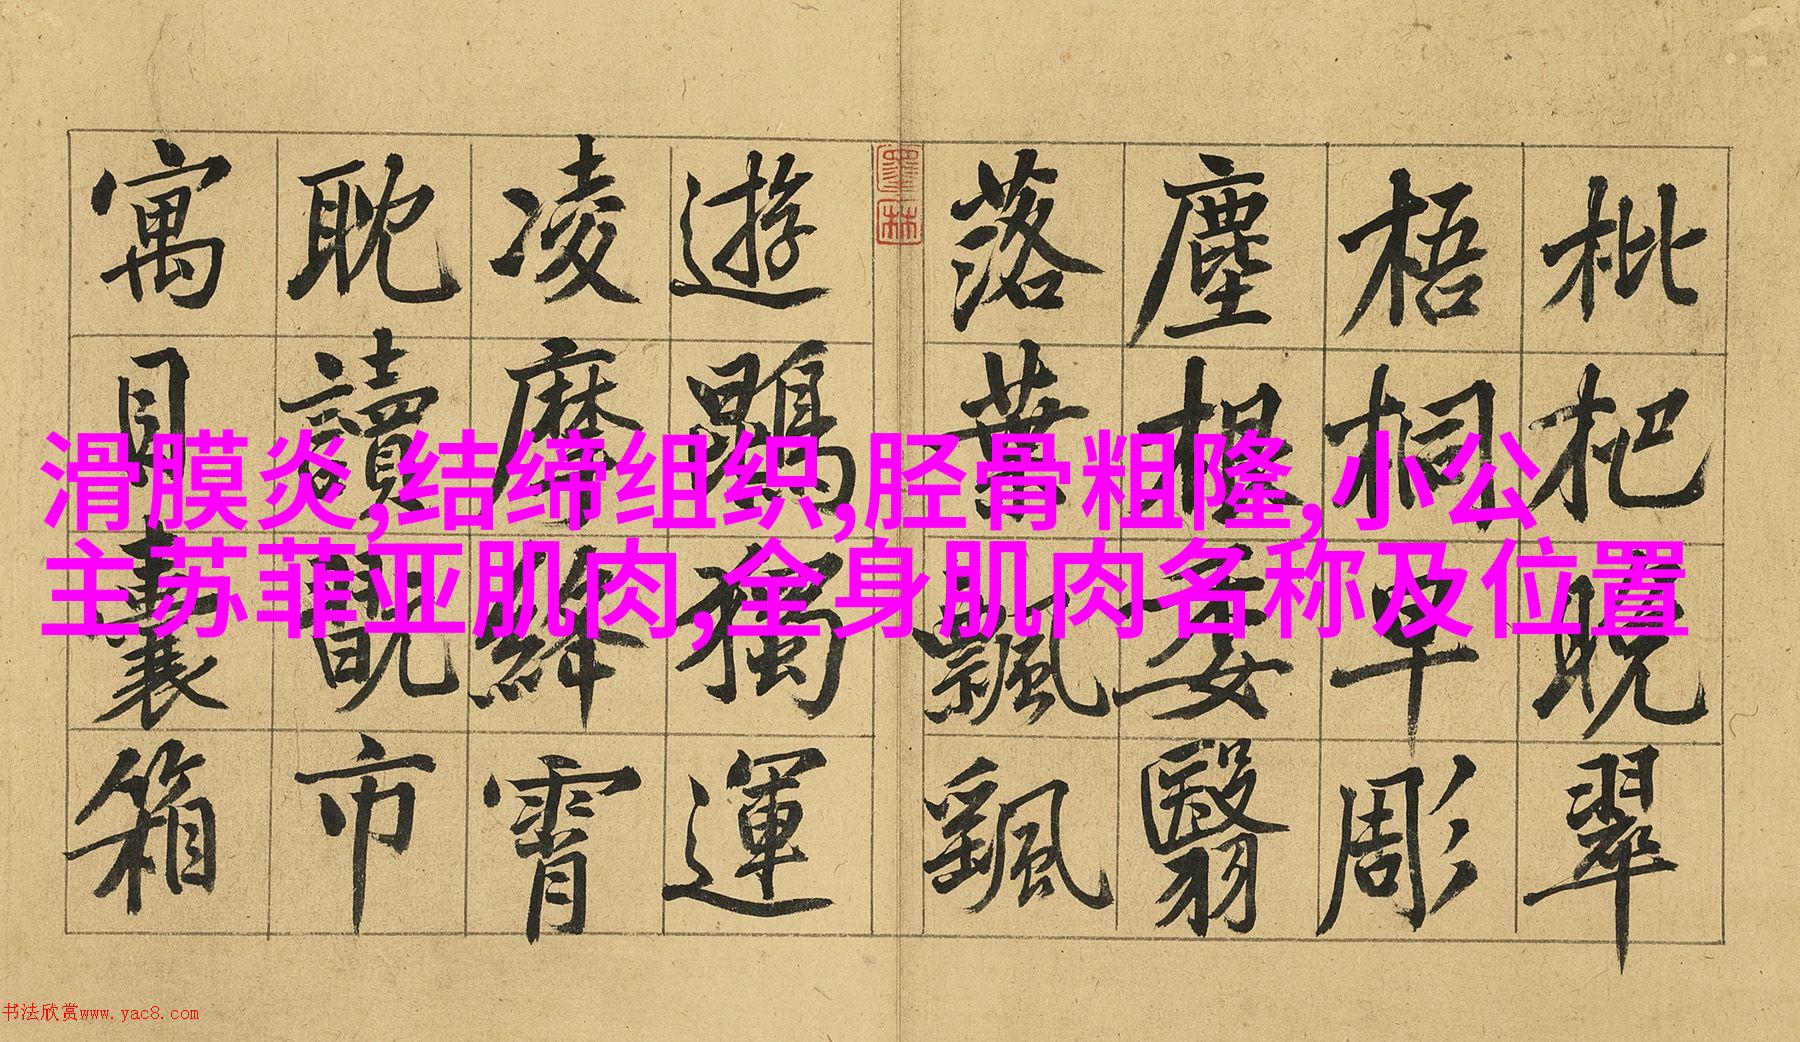 滑膜炎,结缔组织,胫骨粗隆,小公
主苏菲亚肌肉,全身肌肉名称及位置
枇杷晚翠
梧桐早彫
塵根委翳
落葉飄颻
墨林
遊鵾獨運
凌摩絳霄
耽讀翫市
寓目囊箱
书法欣赏www.yac8.com